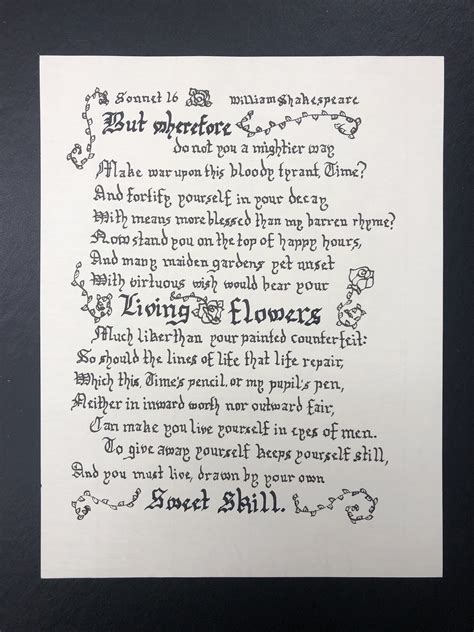 Sonnet 16 William Shakespeare
But wherefore
do not you a mightier way
Make war upon this bloody tyrant, Time?
And fortify yourself in your decay
With means more blessed than my barren rhyme?
Now stand you on the top of happy hours,
And many maiden gardens yet unset
With virtuous wish would bear your
Living flowers
Much liker than your painted counterfeit:
So should the lines of life that life repair,
Which this, Time's pencil, or my pupil's pen,
Neither in inward worth nor outward fair,
Can make you live yourself in eyes of men.
To give away yourself keeps yourself still,
And you must live, drawn by your own
Sweet Skill.